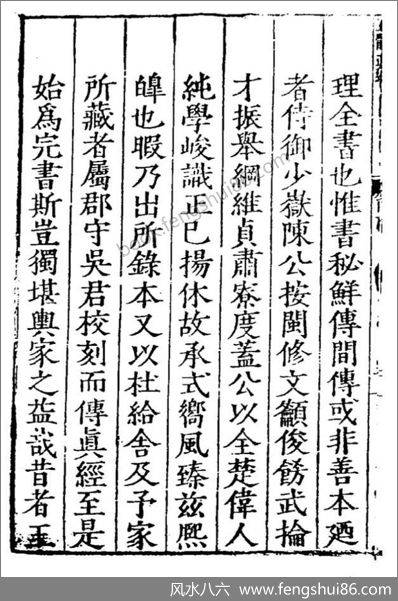 理全書也惟書秘鮮傳間傳或非善本廼
者侍御少嶽陳公按閩修文籲俊餝武掄
才振舉綱維貞肅寮度蓋公以全楚偉人
純學峻識正已揚休故承式嚮風臻兹熈
皡也暇乃出所錄本又以杜給舍及予家
所藏者屬郡守吳君校刻而傳眞經至是
始爲完書斯豈獨堪輿家之益哉昔者王
风水八六 www.fengshui86.com